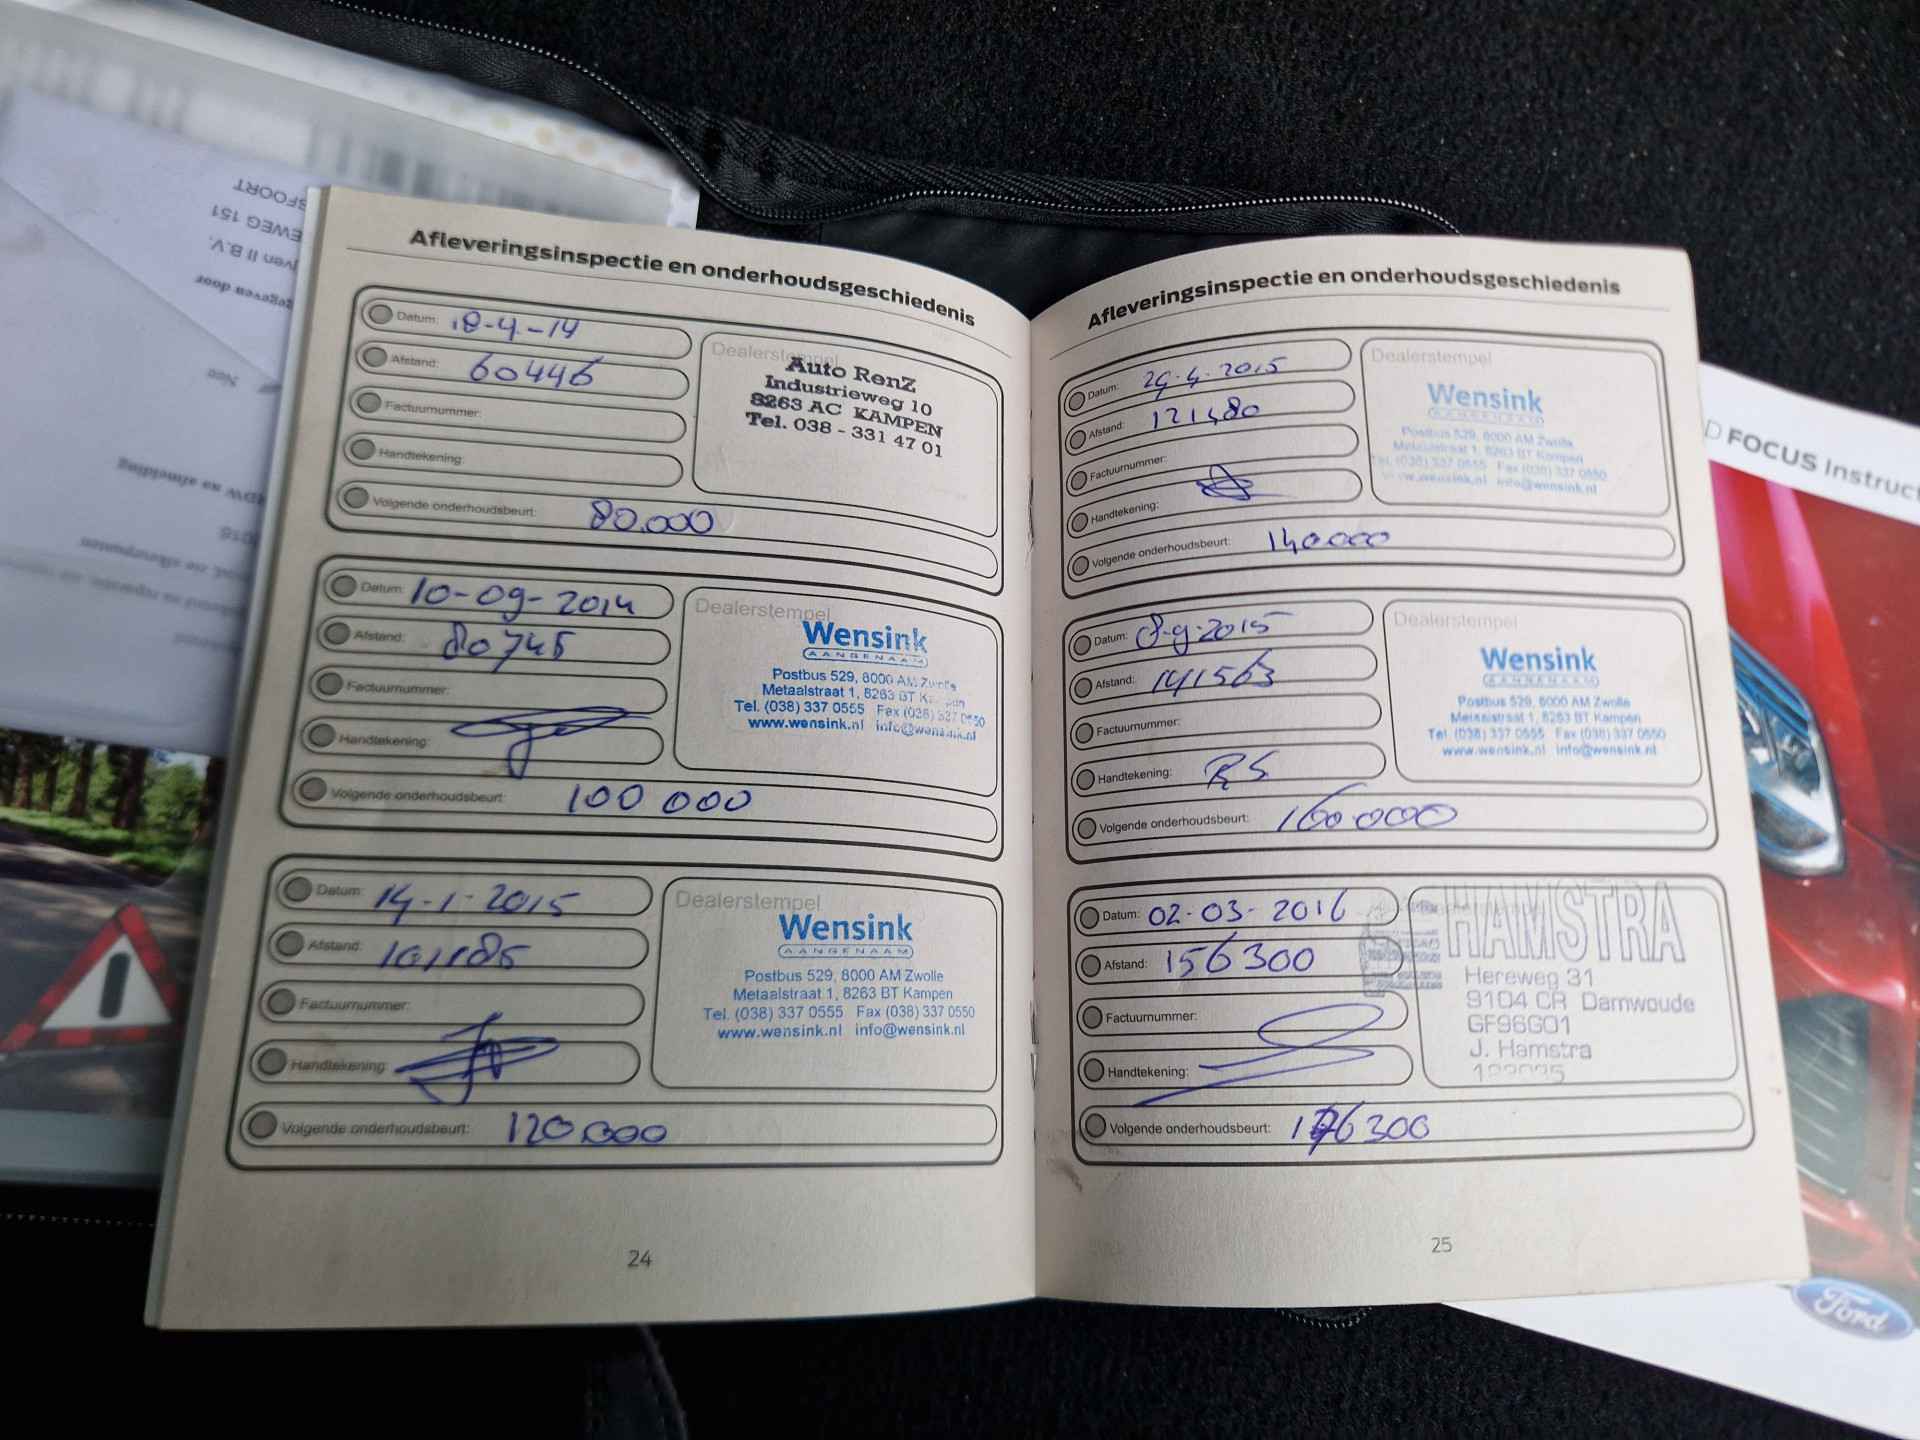 SFOORT
EWEG 151
ven II B.V.
gegeven door
Nee
Afleveringsinspectie en onderhoudsgeschiedenis
Datum: 18-4-14
Afstand: 60446
Factuurnummer:
Handtekening:
Volgende onderhoudsbeurt: 80.000
Dealerstempel
Auto RenZ
Industrieweg 10
8263 AC KAMPEN
Tel. 038 - 331 47 01
Datum: 10-09-2014
Afstand: 80745
Factuurnummer:
Handtekening:
Volgende onderhoudsbeurt: 100 000
Dealerstempel
Wensink
AANGENAAM
Postbus 529, 8000 AM Zwolle
Metaalstraat 1, 8263 BT Kampen
Tel. (038) 337 0555 Fax (038) 337 0550
www.wensink.nl info@wensink.nl
Datum: 14-1-2015
Afstand: 101185
Factuurnummer:
Handtekening:
Volgende onderhoudsbeurt: 120.000
Dealerstempel
Wensink
AANGENAAM
Postbus 529, 8000 AM Zwolle
Metaalstraat 1, 8263 BT Kampen
Tel. (038) 337 0555 Fax (038) 337 0550
www.wensink.nl info@wensink.nl
24
Afleveringsinspectie en onderhoudsgeschiedenis
Datum: 29-4-2015
Afstand: 121480
Factuurnummer:
Handtekening:
Volgende onderhoudsbeurt: 140000
Dealerstempel
Wensink
AANGENAAM
Postbus 529, 8000 AM Zwolle
Metaalstraat 1, 8263 BT Kampen
Tel. (038) 337 0555 Fax (038) 337 0550
www.wensink.nl info@wensink.nl
Datum: 8-9-2015
Afstand: 141563
Factuurnummer:
Handtekening: RS
Volgende onderhoudsbeurt: 160000
Dealerstempel
Wensink
AANGENAAM
Postbus 529, 8000 AM Zwolle
Metaalstraat 1, 8263 BT Kampen
Tel. (038) 337 0555 Fax (038) 337 0550
www.wensink.nl info@wensink.nl
Datum: 02-03-2016
Afstand: 156300
Factuurnummer:
Handtekening:
Volgende onderhoudsbeurt: 176300
HAMSTRA
Hereweg 31
9104 CR Damwoude
GF96G01
J. Hamstra
25
D FOCUS Instruct
Ford